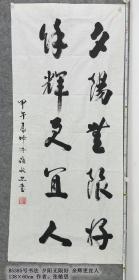 夕陽無限好
餘輝更宜人
甲午
B5385号书法 夕阳无限好 余辉更宜人
138×60cm 作者:张